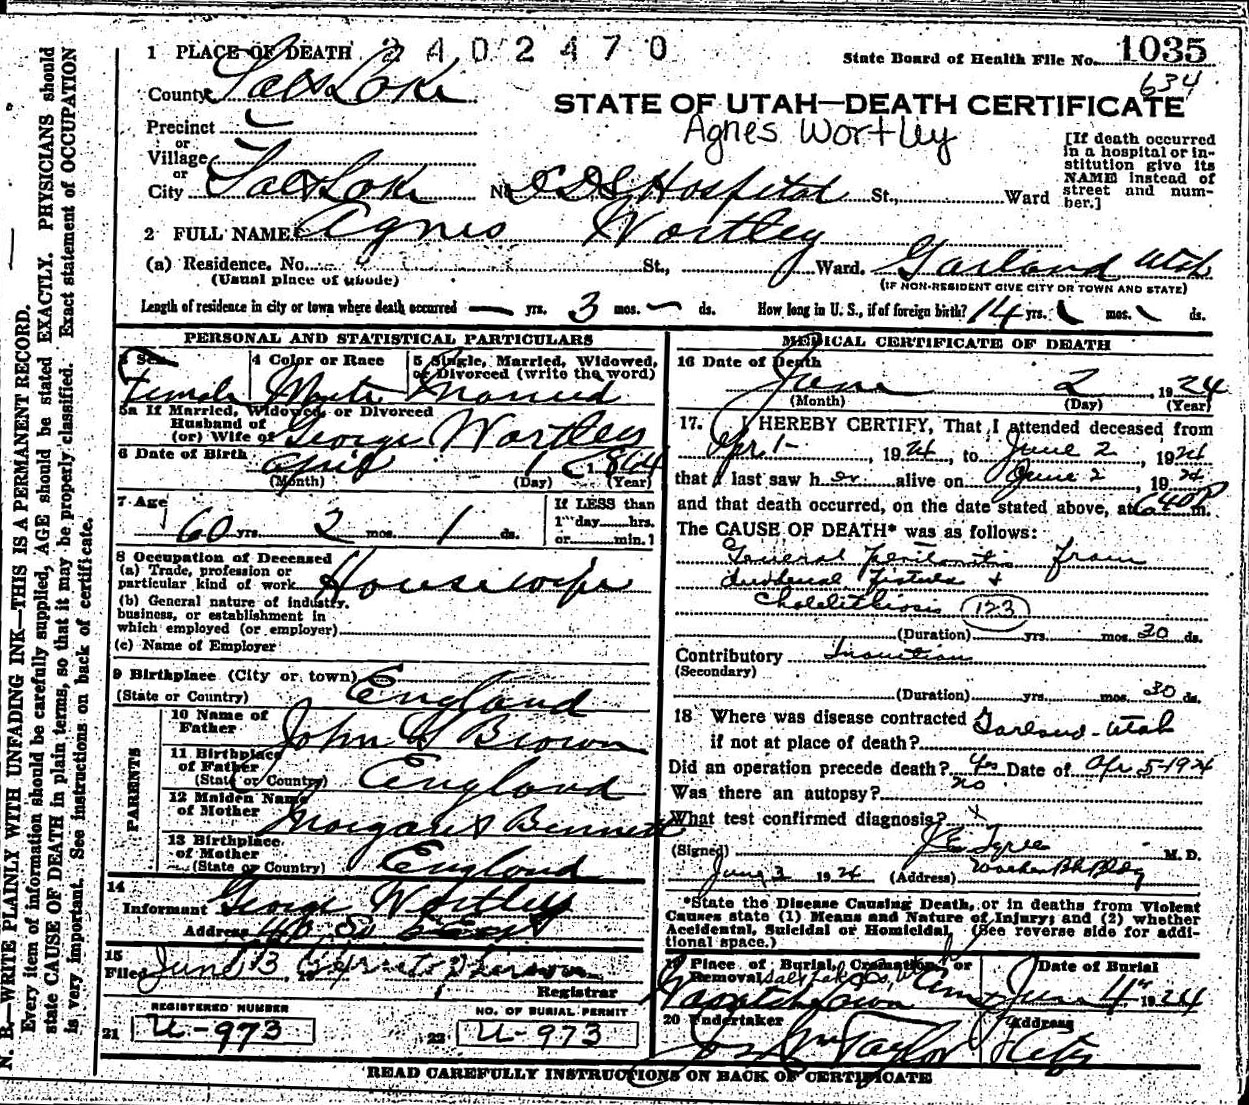 1 PLACE OF DEATH 2402470
State Board of Health File No. 1035
634
County Salt Lake
STATE OF UTAH—DEATH CERTIFICATE
Agnes Wortley
Precinct
or
Village
or
City Salt Lake No LDS Hospital St., Ward
[If death occurred
in a hospital or in-
stitution give its
NAME instead of
street and num-
ber.]
2 FULL NAME Agnes Wortley
(a) Residence, No. St., Ward. Garland Utah
(Usual place of abode) (IF NON-RESIDENT GIVE CITY OR TOWN AND STATE)
Length of residence in city or town where death occurred — yrs. 3 mos. — ds. How long in U. S., if of foreign birth? 14 yrs. mos. ds.
PERSONAL AND STATISTICAL PARTICULARS
3 Sex 4 Color or Race 5 Single, Married, Widowed,
or Divorced (write the word)
Female White Married
5a If Married, Widowed, or Divorced
Husband of
(or) Wife of George Wortley
6 Date of Birth April 1 1864
(Month) (Day) (Year)
7 Age
60 yrs. 2 mos. 1 ds.
If LESS than
1 day hrs.
or min.1
8 Occupation of Deceased
(a) Trade, profession or
particular kind of work Housewife
(b) General nature of industry,
business, or establishment in
which employed (or employer)
(c) Name of Employer
9 Birthplace (City or town)
(State or Country) England
PARENTS
10 Name of
Father John G Brown
11 Birthplace
of Father
(State or Country) England
12 Maiden Name
of Mother Margaret Bennett
13 Birthplace
of Mother
(State or Country) England
14
Informant George Wortley
Address So East
15
Filed June 3, 1924
Registrar
REGISTERED NUMBER
21 U-973
NO. OF BURIAL PERMIT
22 U-973
MEDICAL CERTIFICATE OF DEATH
16 Date of Death
June 2 1924
(Month) (Day) (Year)
17. I HEREBY CERTIFY, That I attended deceased from
Apr. 1-, 1924, to June 2, 1924
that I last saw her alive on June 2, 1924
and that death occurred, on the date stated above, at 640 P m.
The CAUSE OF DEATH* was as follows:
General Peritonitis from
duodenal Fistula +
Cholelithiosis 123
(Duration) yrs. mos. 30 ds.
Contributory Inanition
(Secondary)
(Duration) yrs. mos. 30 ds.
18 Where was disease contracted Garland-Utah
if not at place of death?
Did an operation precede death? Yes Date of Apr 5-1924
Was there an autopsy? no
What test confirmed diagnosis? x
(Signed) J E Tyree M. D.
June 3 1924 (Address) Walker Bk Bldg
*State the Disease Causing Death, or in deaths from Violent
Causes state (1) Means and Nature of Injury; and (2) whether
Accidental, Suicidal or Homicidal. (See reverse side for addi-
tional space.)
19 Place of Burial, Cremation, or Date of Burial
Removal Salt Lake Co, U
Wasatch Lawn Cem June 4" 1924
20 Undertaker Address
Jos Wm Taylor City
READ CAREFULLY INSTRUCTIONS ON BACK OF CERTIFICATE
N. B.—WRITE PLAINLY WITH UNFADING INK—THIS IS A PERMANENT RECORD.
Every item of information should be carefully supplied, AGE should be stated EXACTLY. PHYSICIANS should
state CAUSE OF DEATH in plain terms, so that it may be properly classified. Exact statement of OCCUPATION
is very important. See instructions on back of certificate.